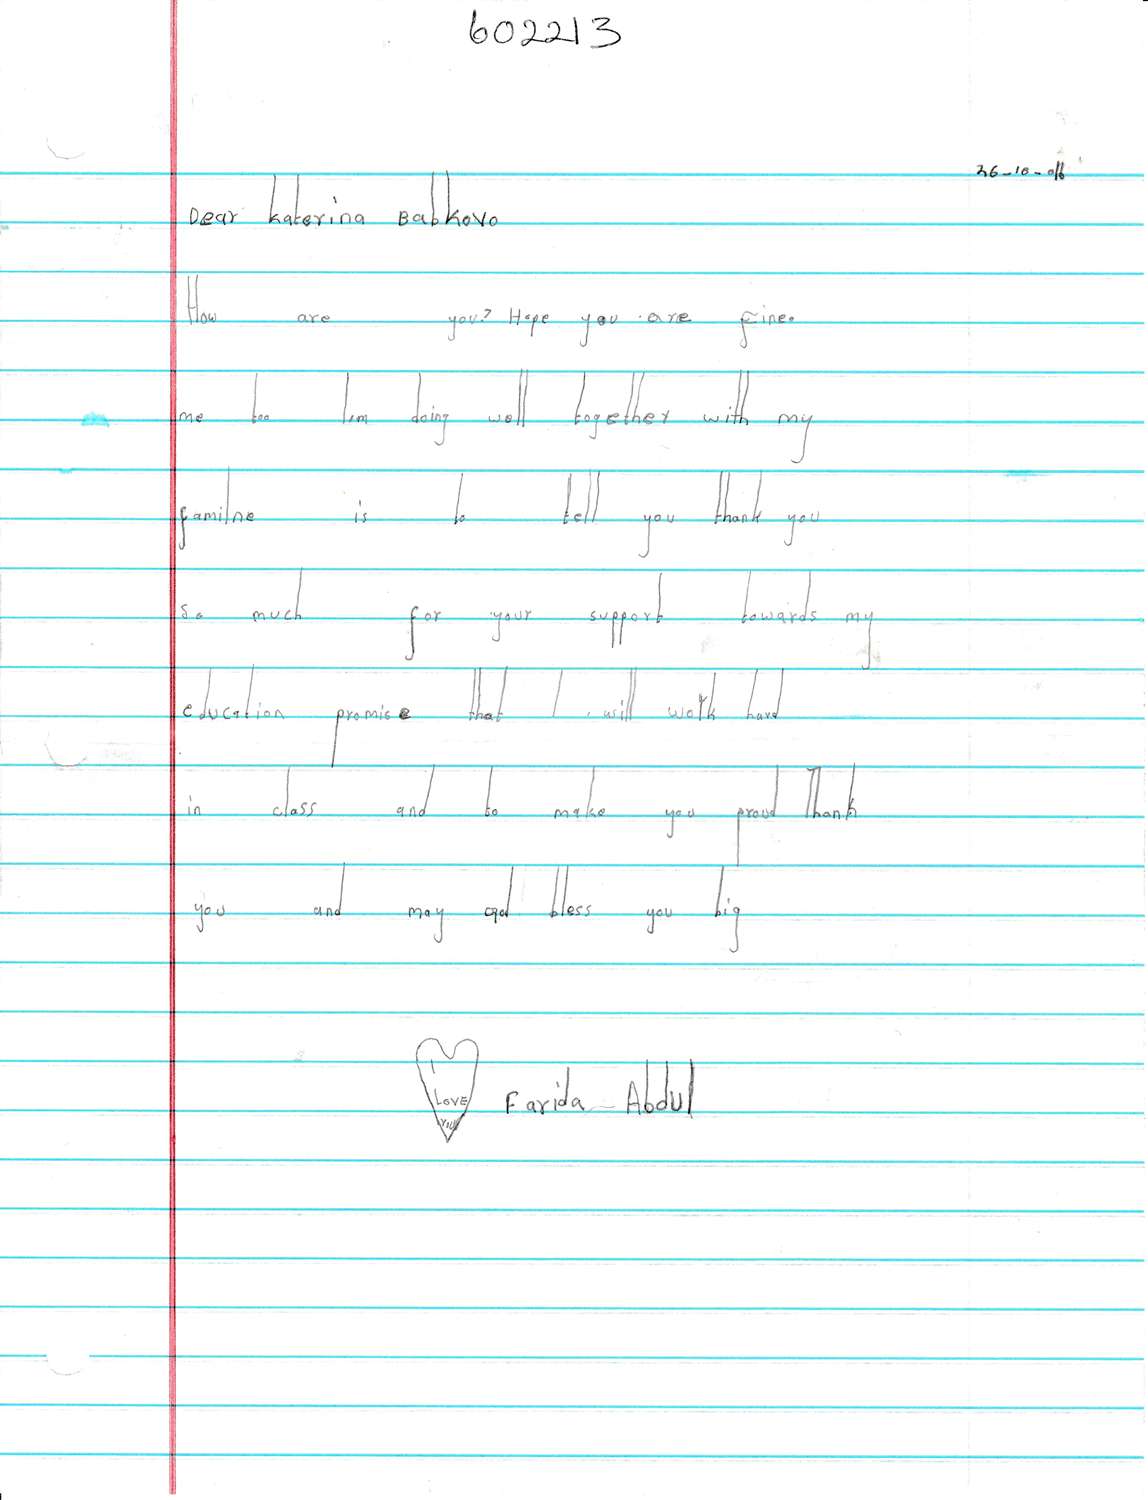 602213
26-10-016
Dear Katerina Babkovo
How are you? Hope you are fine.
me too Iam doing well together with my
familne is to tell you thank you
so much for your support towards my
education promise that I will work hard
in class and to make you proud Thank
you and may god bless you big
I
LOVE
YOU
Farida - Abdul